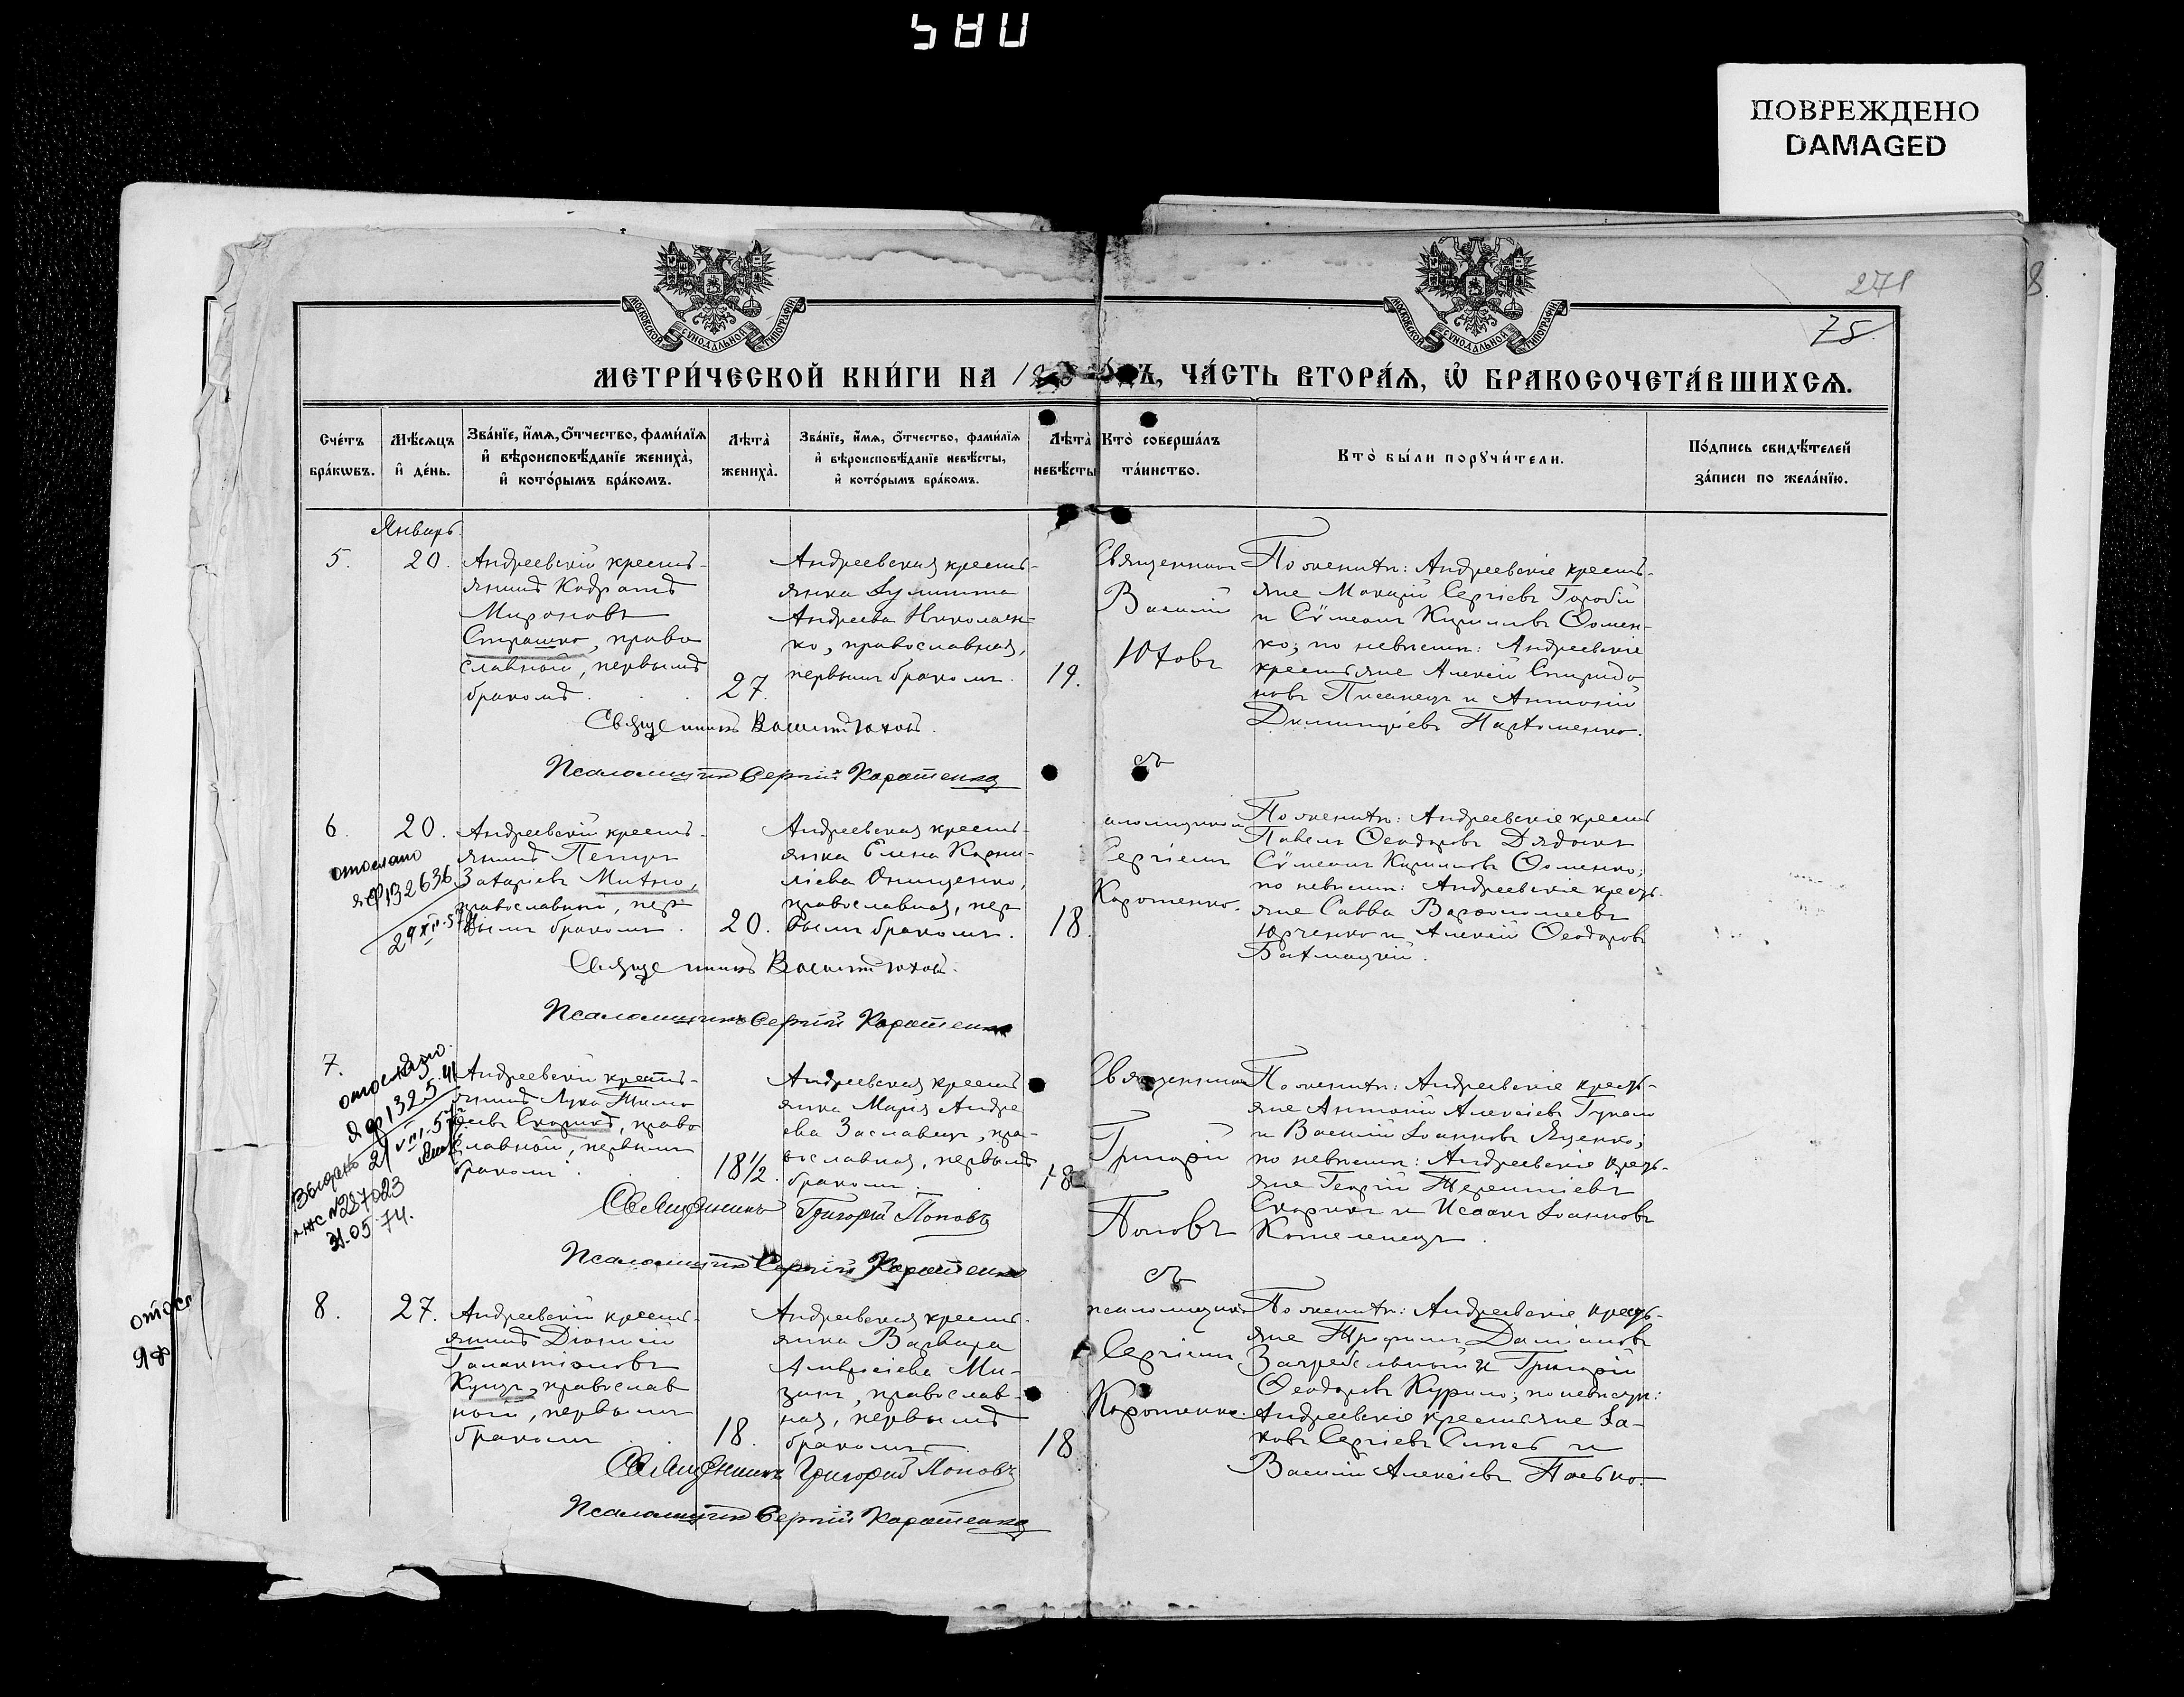 ПОВРЕЖДЕНО
DAMAGED
271
75.
МЕТРИ́ЧЕСКОЙ КНИ́ГИ НА 
Ъ, ЧА́СТЬ ВТОРА́Ѧ, Ѽ БРАКОСОЧЕТА́ВШИХСѦ.
Сче́тъ бра́кѡвъ.
Мѣ́сѧцъ и҆ де́нь.
Зва́нїе, и҆́мѧ, ѻ҆́тчество, фами́лїѧ
и҆ вѣроисповѣ́данїе жениха̀,
и҆ кото́рымъ бра́комъ.
Лѣта̀ жениха̀.
Зва́нїе, и҆́мѧ, ѻ҆́тчество, фами́лїѧ
и҆ вѣроисповѣ́данїе невѣ́сты,
и҆ кото́рымъ бра́комъ.
Лѣта̀ невѣ́сты
Кто̀ соверша́лъ та́инство.
Кто̀ бы́ли порꙋчи́тели.
По́дпись свидѣ́телей
за́писи по жела́нїю.
Январь.
5.
20.
Андреевскій кресть-
янинъ Кодратъ
Мироновъ
Страшко, право
славный, первымъ
бракомъ.
27.
Андреевская кресть-
янка
Андреева Николаен-
ко, православная,
первымъ бракомъ.
19.
Священникъ
Василій
Юховъ
По женихѣ: Андреевскіе кресть-
яне Макарій Сергіевъ Горобій
и Сѵмеонъ Кириловъ Ѳомен-
ко; по невѣстѣ: Андреевскіе
крестьяне Алексій Спиридо
новъ Писанецъ и Антоній
Димитріевъ Пархоменко.
Священникъ Василій Юховъ.
Псаломщикъ Сергій Коротенко
съ
6.
20.
отослано
яф 132636
29 XII-57
Андреевскій кресть-
янинъ Петръ
Захаріевъ Михно,
православный, пер
вымъ бракомъ.
20.
Андреевская кресть-
янка Елена Корни-
ліева Онищенко,
православная, пер
вымъ бракомъ.
18.
аломщикомъ
Сергіемъ
Коротенко.
По женихѣ: Андреевскіе кресть
Павелъ Ѳеодоровъ
Сѵмеонъ Кириловъ Ѳоменко;
по невѣстѣ: Андреевскіе кресть-
яне Савва Варѳоломеевъ
Юрченко и Алексій Ѳеодоровъ
Бахмацкій.
Священникъ Василій Юховъ.
Псаломщикъ Сергій Коротенко
7.
отослано.
Яф 1325
21 VIII.5
Выдано
№227023
31-05-74.
Андреевскій кресть-
янинъ Лука Тимо
ѳеевъ Скорикъ, право
славный, первымъ
бракомъ.
18½.
Андреевская кресть
янка Марія Андре
ева Заславецъ, пра-
вославная, первымъ
бракомъ.
18
Священникъ
Григорій
Поповъ
По женихѣ: Андреевскіе кресть-
яне Антоній Алексіевъ
и Василій Іоанновъ Яценко;
по невѣстѣ: Андреевскіе кресть-
яне Георгій Терентіевъ
Скорикъ и Исаакъ Іоанновъ
Священникъ Григорій Поповъ
Псаломщикъ Сергій Коротенко
съ
8.
27.
отосл
Яф
Андреевскій кресть-
янинъ Діонисій
Галактіоновъ
Куцъ, православ
ный, первымъ
бракомъ
18.
Андреевская кресть-
янка Варвара
Амвросіева Ми-
зинъ, православ-
ная, первымъ
бракомъ.
18
псаломщикомъ
Сергіемъ
Коротенко.
По женихѣ: Андреевскіе кресть-
яне Трофимъ Даміановъ
Загребельный и Григорій
Ѳеодоровъ Курило; по невѣстѣ:
Андреевскіе крестьяне Іа-
ковъ Сергіевъ и
Василій Алексіевъ
Священникъ Григорій Поповъ
Псаломщикъ Сергій Коротенко